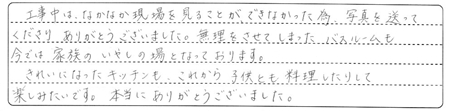 工事中は、なかなか現場を見ることができなかった為、写真を送って
くださり、ありがとうございました。無理をさせてしまった、バスルームも
今では家族のいやしの場となっております。
きれいになったキッチンも、これから子供とも料理したりして
楽しみたいです。本当にありがとうございました。